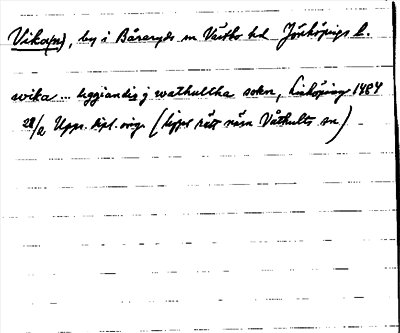 Vika(n), by i Båraryds sn Västbo hd Jönköpings l.
wika ... liggiandis j wathultha sokn, Linköping 1484
28/2 Upps. dipl. orig. (ligger rätt nära Våthults sn)